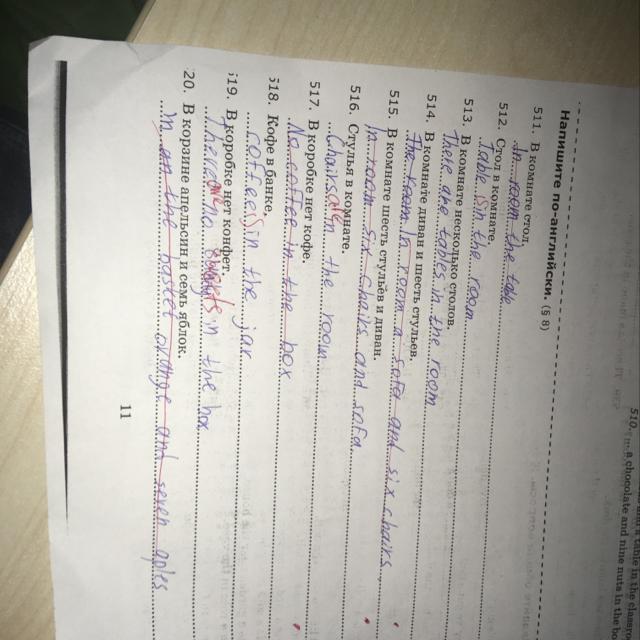 510.
a chocolate and nine nuts in the bo
Напишите по-английски. (§ 8)
511. В комнате стол.
In room the table
512. Стол в комнате.
Table is in the room
513. В комнате несколько столов.
There are tables in the room
514. В комнате диван и шесть стульев.
The room In room a sofa and six chairs
515. В комнате шесть стульев и диван.
In room six chairs and sofa
516. Стулья в комнате.
Chairs in the room
517. В коробке нет кофе.
No coffee in the box
518. Кофе в банке.
coffee is in the jar
519. В коробке нет конфет.
There are no sweets in the box
520. В корзине апельсин и семь яблок.
in the basket orange and seven aples
11